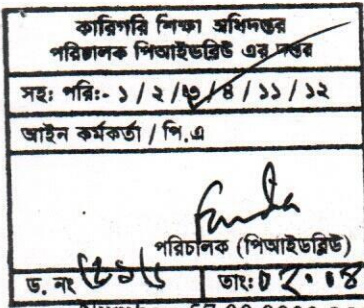 কারিগরি শিক্ষা অধিদপ্তর
পরিচালক পিআইডব্লিউ এর দপ্তর
সহ: পরি:- ১ / ২ / ৩ / ৪ / ১১ / ১২
আইন কর্মকর্তা / পি.এ
পরিচালক (পিআইডব্লিউ)
ড. নং
তাং: